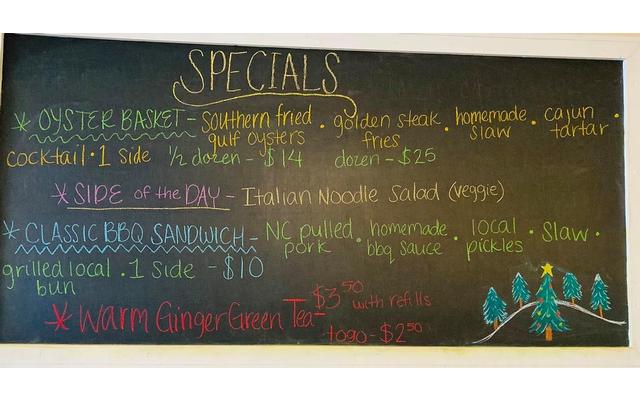 SPECIALS
* OYSTER BASKET - Southern fried gulf oysters • golden steak fries • homemade slaw • cajun tartar •
cocktail • 1 side ½ dozen - $14 dozen - $25
* SIDE of the DAY - Italian Noodle Salad (veggie)
* CLASSIC BBQ SANDWICH - NC pulled pork • homemade bbq sauce • local pickles • Slaw •
grilled local bun • 1 side - $10
* Warm Ginger Green Tea - $3.50 with refills
togo - $2.50